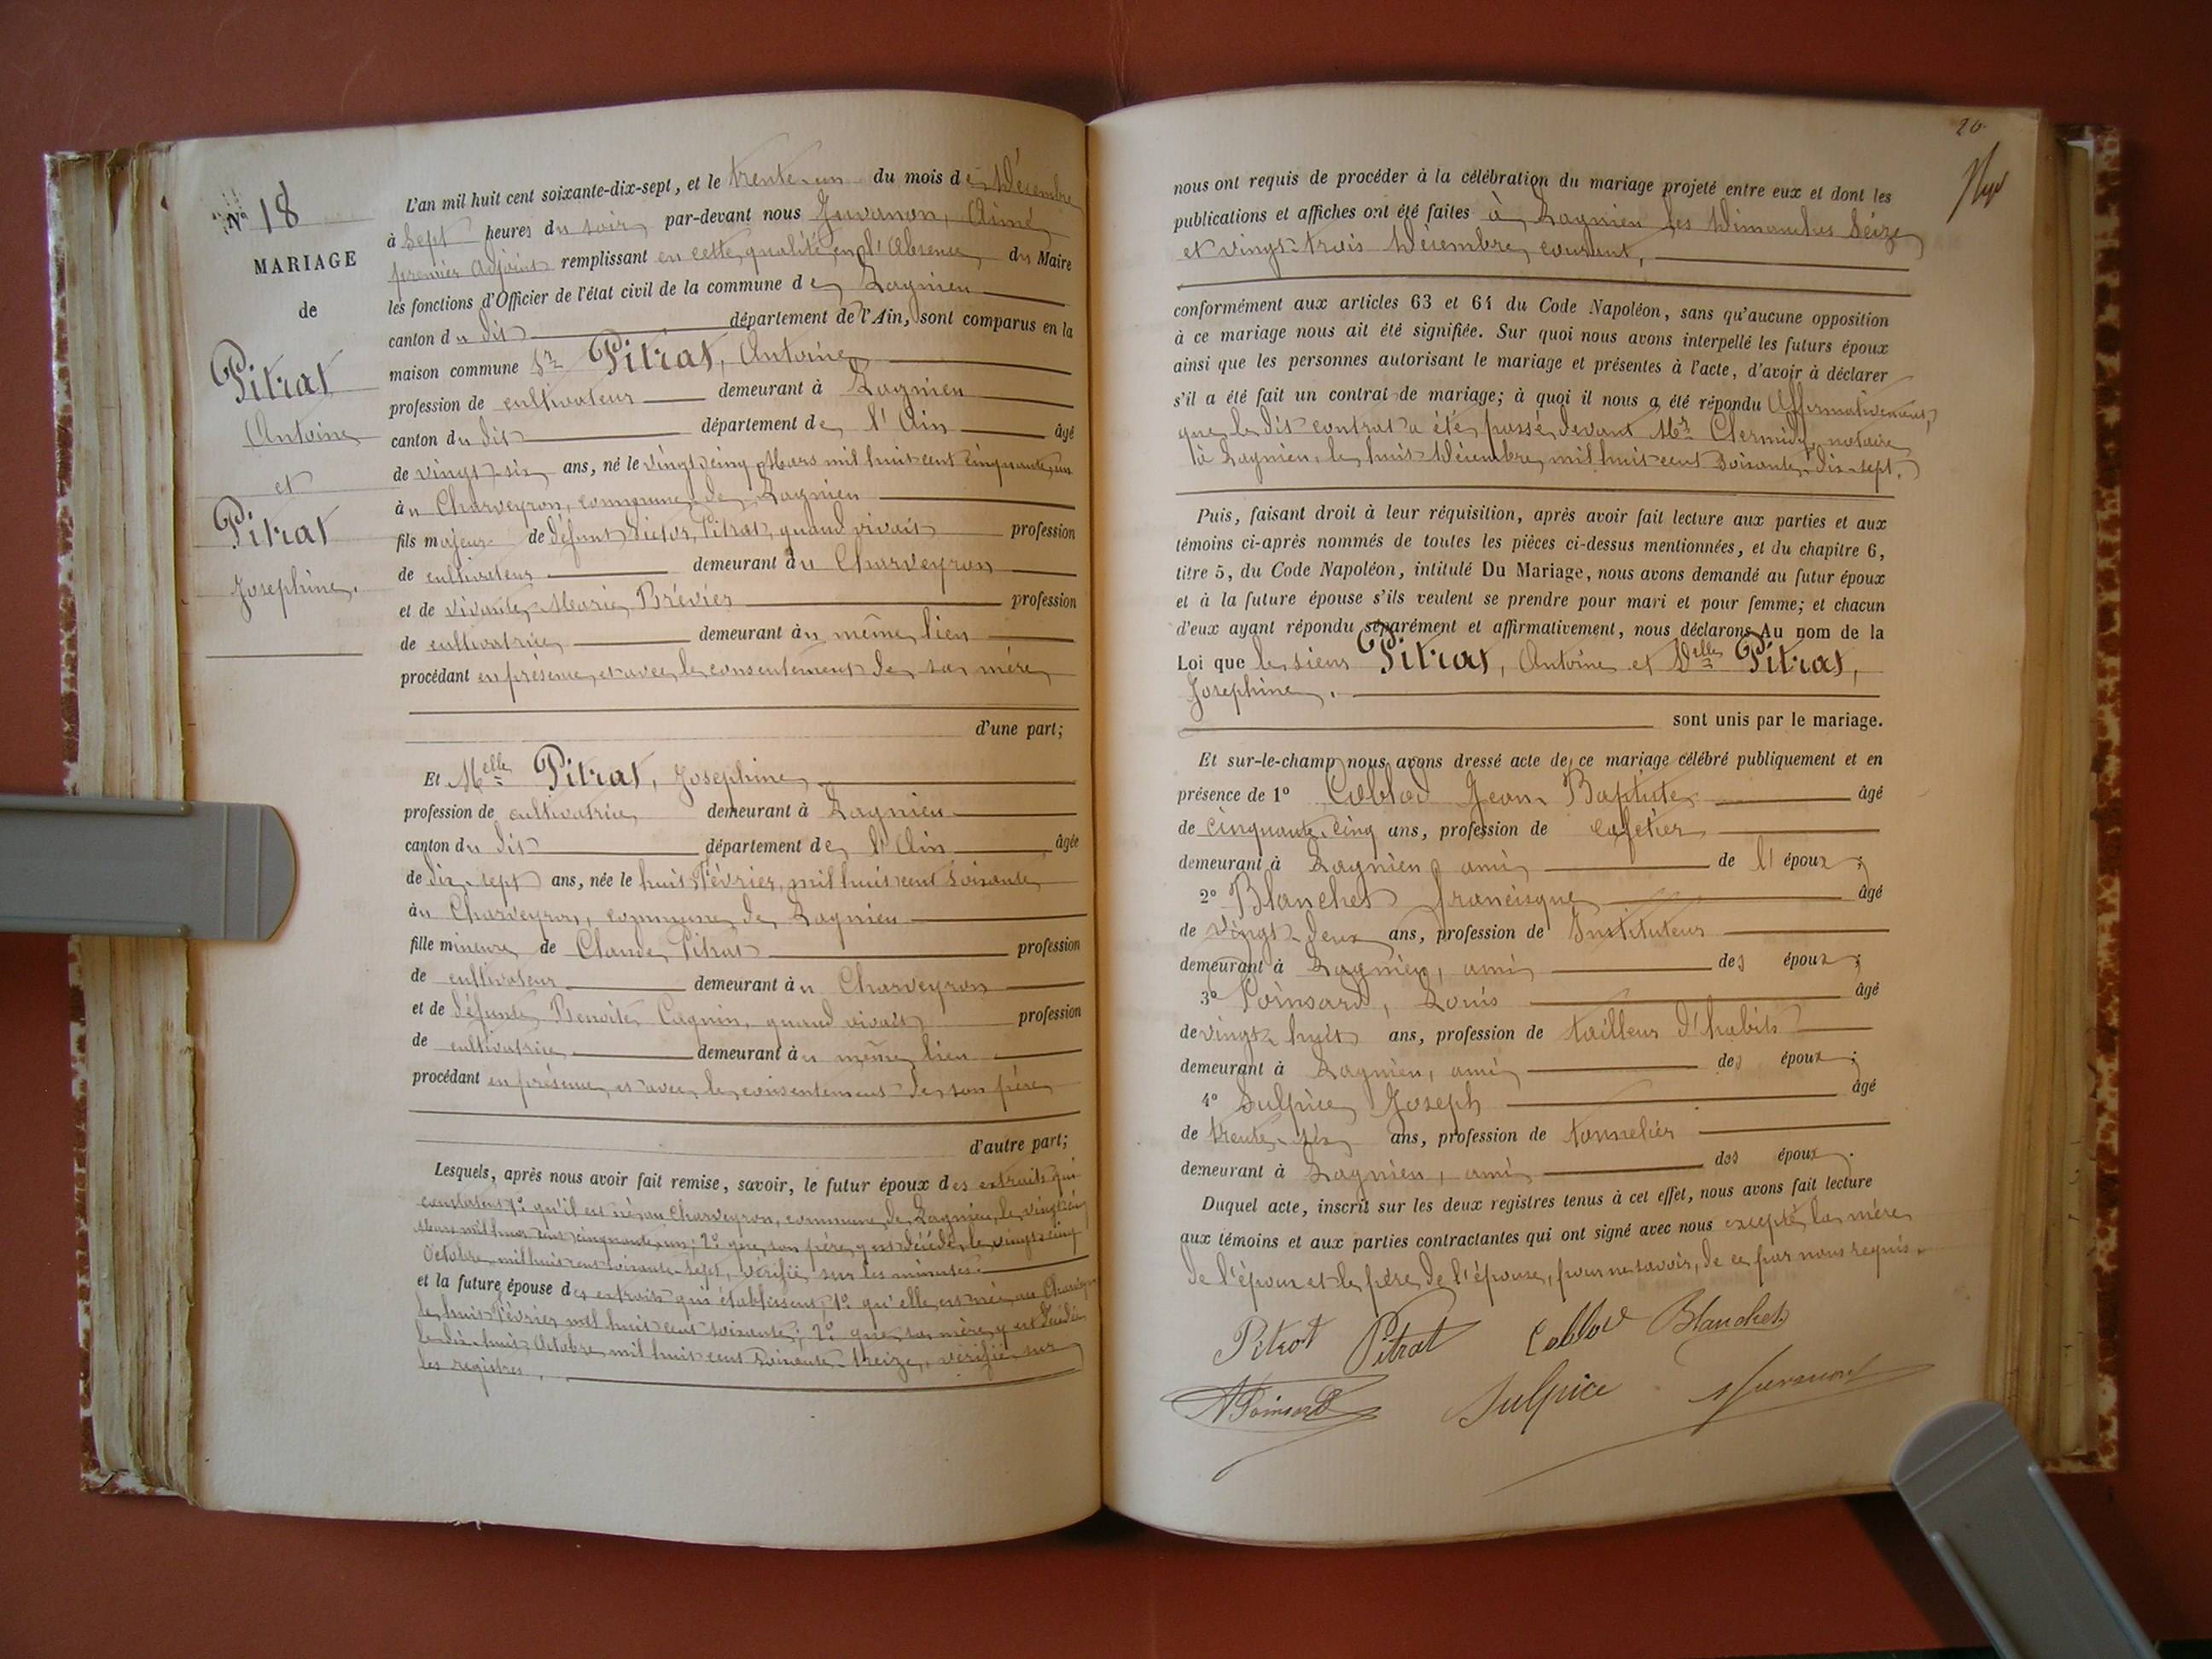 N° 18
MARIAGE
de
Pitrat
Antoine
et
Pitrat
Josephine.
L'an mil huit cent soixante-dix-sept, et le trente-un du mois de Décembre
à Sept heures du soir par-devant nous Juvanon, Aimé
premier Adjoint remplissant en cette qualité en l'Absence du Maire
les fonctions d'Officier de l'état civil de la commune de Lagnieu
canton du dit département de l'Ain, sont comparus en la
maison commune Sr Pitrat, Antoine
profession de cultivateur demeurant à Lagnieu
canton du dit département de l'Ain âgé
de vingt-six ans, né le vingt cinq Mars mil huit cent cinquante un
au Charveyron, commune de Lagnieu
fils majeur de défunt Victor Pitrat, quand vivait profession
de cultivateur demeurant au Charveyron
et de vivante Marie Brévier profession
de cultivatrice demeurant au même lieu
procédant en présence et avec le consentement de sa mère
d'une part;
Et Melle Pitrat, Josephine
profession de cultivatrice demeurant à Lagnieu
canton du dit département de l'Ain âgée
de dix-sept ans, née le huit Février mil huit cent soixante
au Charveyron, commune de Lagnieu
fille mineure de Claude Pitrat profession
de cultivateur demeurant au Charveyron
et de défunte Benoite Cagnin, quand vivait profession
de cultivatrice demeurant au même lieu
procédant en présence et avec le consentement de son père
d'autre part;
Lesquels, après nous avoir fait remise, savoir, le futur époux des extraits qui
constatent 1° qu'il est né au Charveyron, commune de Lagnieu, le vingt cinq
Mars mil huit cent cinquante un; 2° que son père y est décédé le vingt cinq
Octobre mil huit cent soixante-sept, vérifié sur les minutes.
et la future épouse des extraits qui établissent, 1° qu'elle est née au Charveyron
le huit Février mil huit cent soixante; 2° que sa mère y est décédée
le dix-huit Octobre mil huit cent soixante-treize, vérifié sur
les registres.
20
nous ont requis de procéder à la célébration du mariage projeté entre eux et dont les
publications et affiches ont été faites à Lagnieu les Dimanches Seize
et vingt-trois Décembre courant,
conformément aux articles 63 et 64 du Code Napoléon, sans qu'aucune opposition
à ce mariage nous ait été signifiée. Sur quoi nous avons interpellé les futurs époux
ainsi que les personnes autorisant le mariage et présentes à l'acte, d'avoir à déclarer
s'il a été fait un contrat de mariage; à quoi il nous a été répondu Affirmativement,
que le dit contrat a été passé devant Mr Clermidy notaire
à Lagnieu, le huit Décembre mil huit cent soixante-dix-sept.
Puis, faisant droit à leur réquisition, après avoir fait lecture aux parties et aux
témoins ci-après nommés de toutes les pièces ci-dessus mentionnées, et du chapitre 6,
titre 5, du Code Napoléon, intitulé Du Mariage, nous avons demandé au futur époux
et à la future épouse s'ils veulent se prendre pour mari et pour femme; et chacun
d'eux ayant répondu séparément et affirmativement, nous déclarons Au nom de la
Loi que le sieur Pitrat, Antoine et Delle Pitrat,
Josephine.
sont unis par le mariage.
Et sur-le-champ nous avons dressé acte de ce mariage célébré publiquement et en
présence de 1° Coblod Jean Baptiste âgé
de cinquante-cinq ans, profession de cafetier
demeurant à Lagnieu ami de l'époux;
2° Blanchet francisque âgé
de vingt-deux ans, profession de Instituteur
demeurant à Lagnieu, ami des époux;
3° Poinsard, Louis âgé
de vingt-huit ans, profession de tailleur d'habits
demeurant à Lagnieu, ami des époux;
4° Sulpice Joseph âgé
de trente-six ans, profession de tonnelier
demeurant à Lagnieu, ami des époux.
Duquel acte, inscrit sur les deux registres tenus à cet effet, nous avons fait lecture
aux témoins et aux parties contractantes qui ont signé avec nous excepté la mère
de l'époux et le père de l'épouse, pour ne savoir, de ce par nous requis.
Pitrat Pitrat Coblod Blanchet
Poinsard Sulpice Juvanon